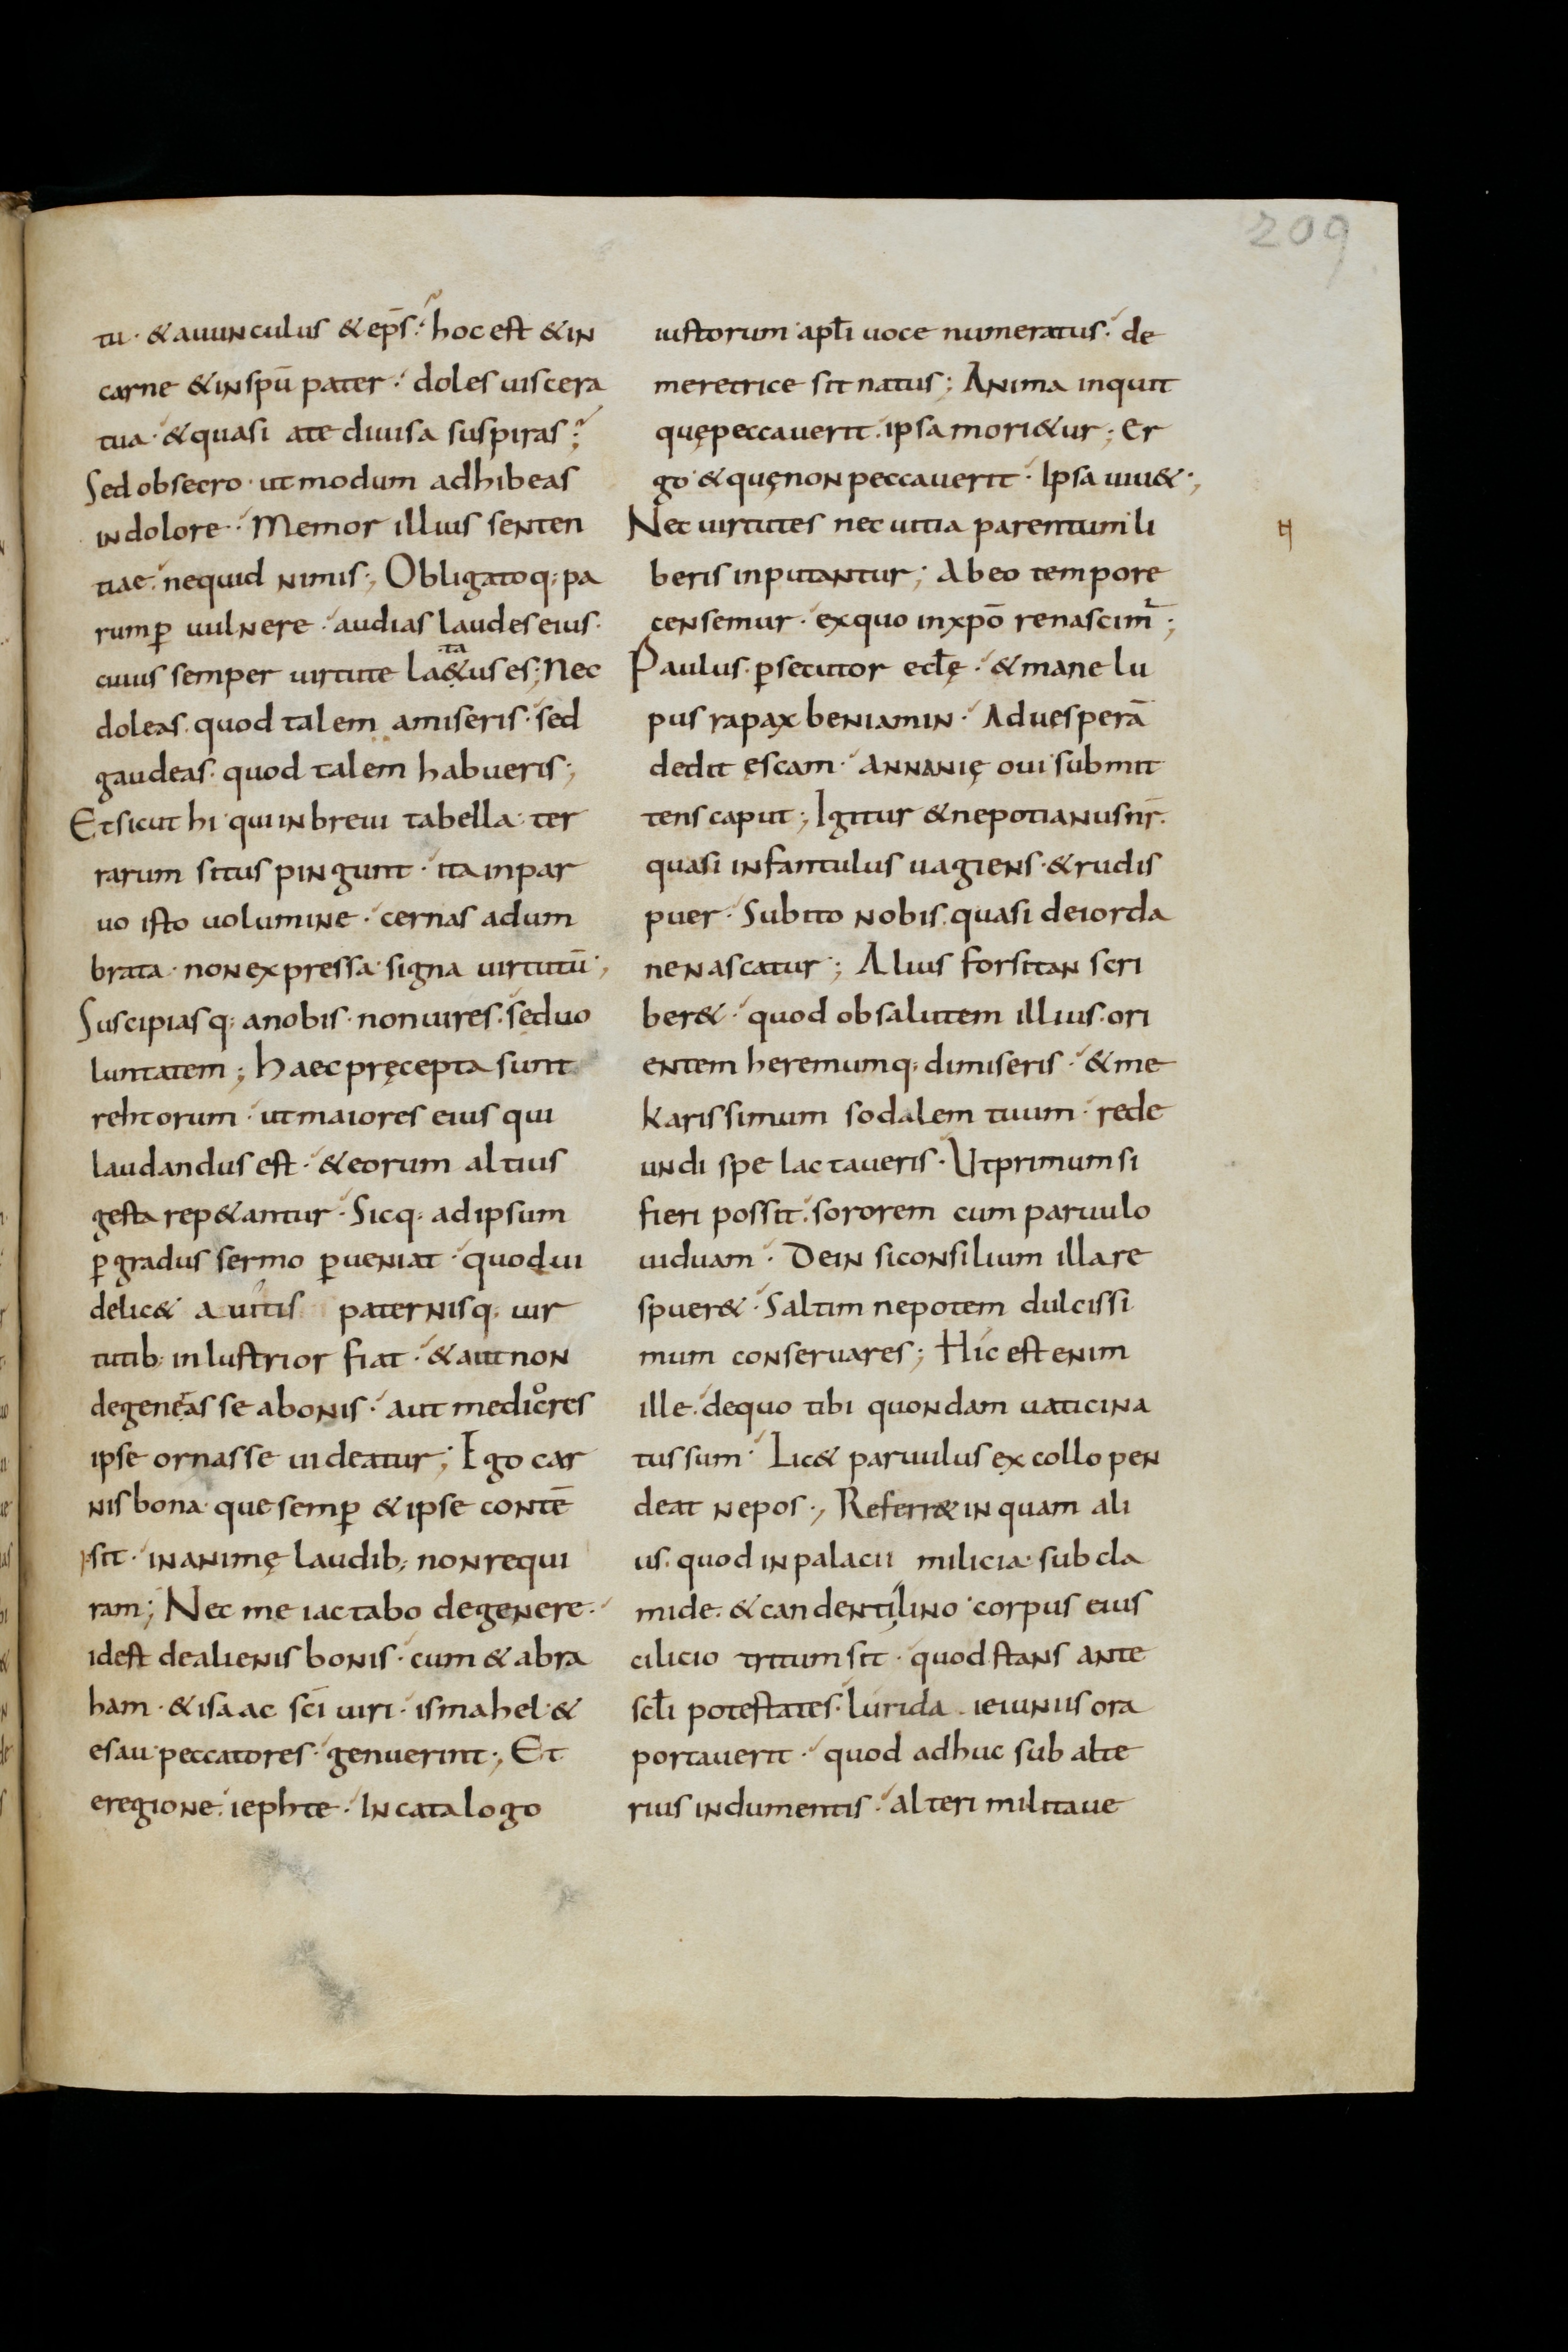 209
tu · & auunculus & ep̄s · hoc est & in
carne & in spū pater · doles uiscera
tua · & quasi a te diuisa suspiras ;
Sed obsecro · ut modum adhibeas
in dolore · Memor illius senten
tiae · nequid nimis ; Obligatoq; pa
rump̱ uulnere · audias laudes eius ·
cuius semper uirtute la&taus es ; Nec
doleas · quod talem amiseris · sed
gaudeas · quod talem habueris ;
Et sicut hi · qui in breui tabella · ter
rarum situs pingunt · ita in par
uo isto uolumine · cernas adum
brata · non expressa · signa uirtutū ;
Suscipias q; a nobis · non uires · sed uo
luntatem ; Haec pręcepta sunt
rehtorum · ut maiores eius qui
laudandus est · & eorum altius
gesta rep&antur · Sicq; ad ipsum
p̱ gradus sermo p̱ueniat · quod ui
delic& auitis paternisq; uir
tutib; inlustrior fiat · & aut non
degenerasse a bonis · aut mediocres
ipse ornasse uideatur ; Ego car
nis bona · que semp̱ & ipse contē
psit · in animę laudib; non requi
ram ; Nec me iactabo de genere ·
id est de alienis bonis · cum & abra
ham · & isaac sc̄i uiri · ismahel · &
esau · peccatores · genuerint ; Et
e regione · iephte · In catalogo
iustorum apłi uoce numeratus · de
meretrice sit natus ; Anima inquit
quę peccauerit · ipsa mori&ur ; Er
go & quę non peccauerit · Ipsa uiu& ;
Nec uirtutes nec uitia parentum li
beris inputantur ; Ab eo tempore
censemur · ex quo in xp̄o renascim̄ ;
Paulus p̱secutor ecłę · & mane lu
pus rapax beniamin · Ad uesperā
dedit ęscam · Annanię oui submit
tens caput ; Igitur & nepotianus nr̄ ·
quasi infantulus uagiens · & rudis
puer · Subito nobis · quasi de iorda
ne nascatur ; Alius forsitan scri
ber& · quod ob salutem illius · ori
entem heremumq; dimiseris · & me
Karissimum sodalem tuum · rede
undi spe lactaueris · Ut primum si
fieri possit · sororem cum paruulo
uiduam · Dein si consilium illa re
spuer& · Saltim nepotem dulcissi
mum conseruares ; Hic est enim
ille · de quo tibi quondam uaticina
tus sum · Lic& paruulus ex collo pen
deat nepos ; Referr& inquam ali
us · quod in palacii milicia · sub cla
mide · & candenti lino · corpus eius
cilicio tritum sit · quod stans ante
scłi potestates · lurida ieiuniis ora
portauerit · quod adhuc sub alte
rius indumentis · alteri militaue